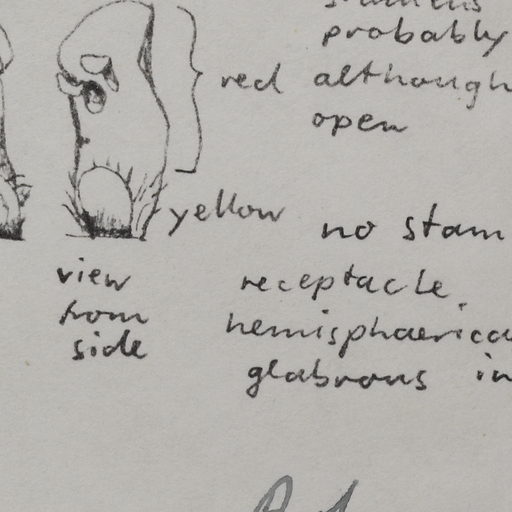 probably
red although
open
yellow no stam
view receptacle
from hemisphaerica
side glabrous in